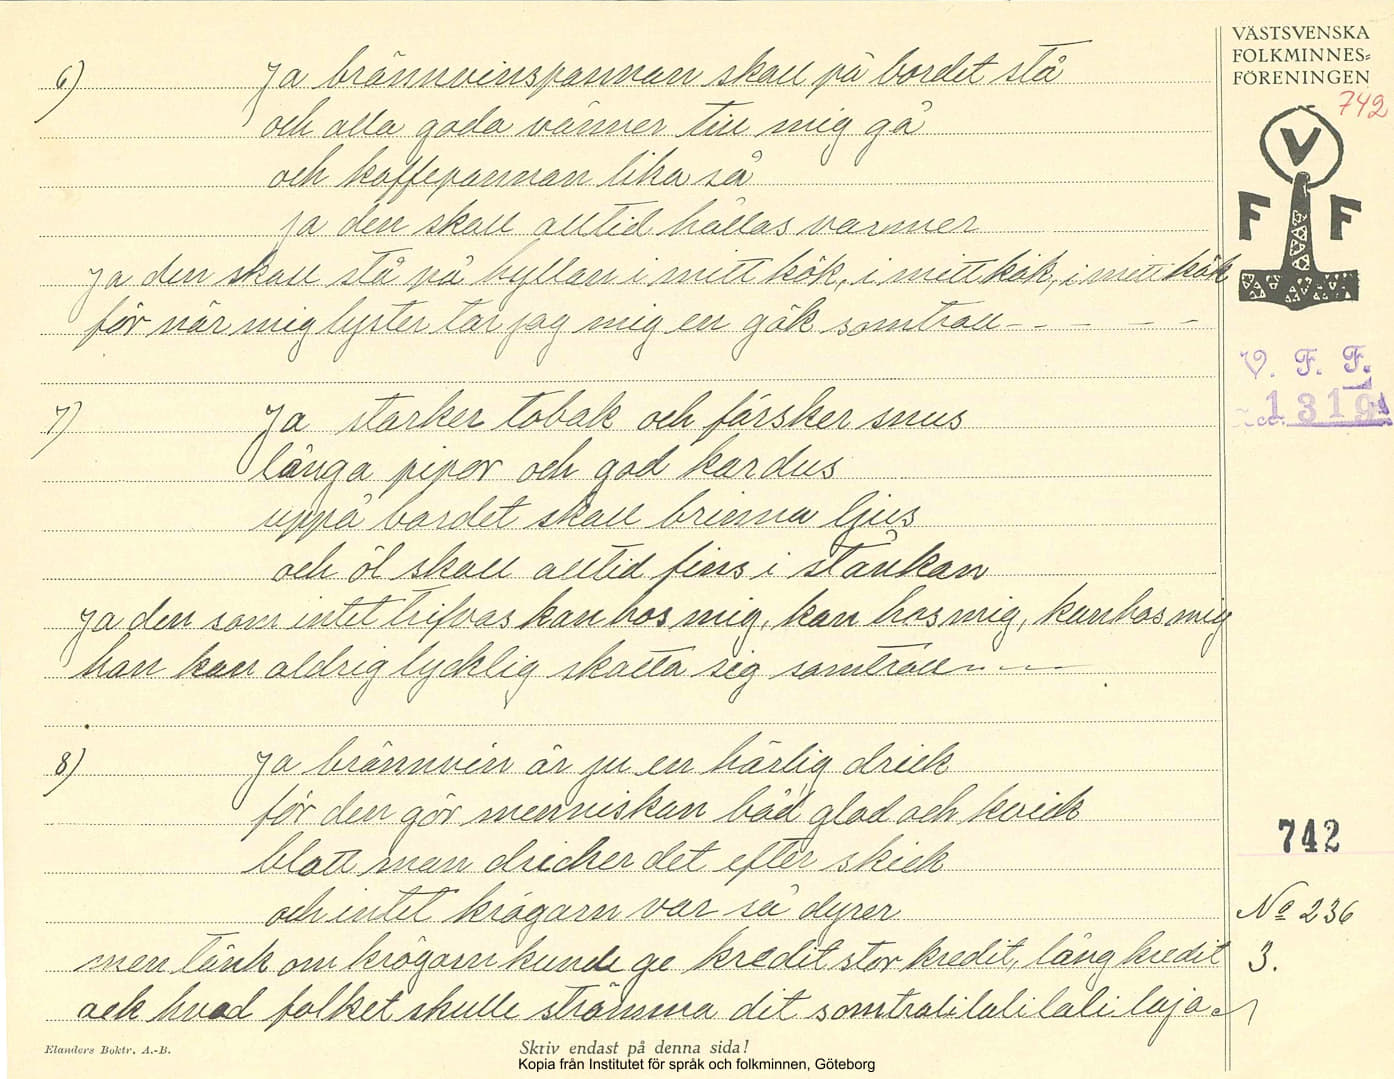 VÄSTSVENSKA
FOLKMINNES-
FÖRENINGEN
742
V
F F
V. F. F.
1319
6) Ja brännvinspannan skall på bordet stå
och alla goda vänner till mig gå
och kaffepannan lika så
ja den skall alltid hållas varmer
Ja den skall stå på hyllan i mitt kök, i mitt kök, i mitt kök
för när mig lyster tar jag mig en gök somtrall- - - - -
7) Ja starker tobak och färsker snus
långa pipor och god kardus
uppå bordet skall brinna ljus
och öl skall alltid fins i stånkan
Ja den som intet trifvas kan hos mig, kan hos mig, kan hos mig
han kan aldrig lycklig skatta sig somtrall- - -
8) Ja brännvin är ju en härlig drick
för den gör menniskan båd glad och kvick
blott man dricker det efter skick
och intet krögarn var så dyrer
men tänk om krögarn kunde ge kredit stor kredit, lång kredit
ack hvad folket skulle strömma dit somtralilalilalilaja.
742
No 236
3.
Elanders Boktr. A.-B.
Skriv endast på denna sida!
Kopia från Institutet för språk och folkminnen, Göteborg